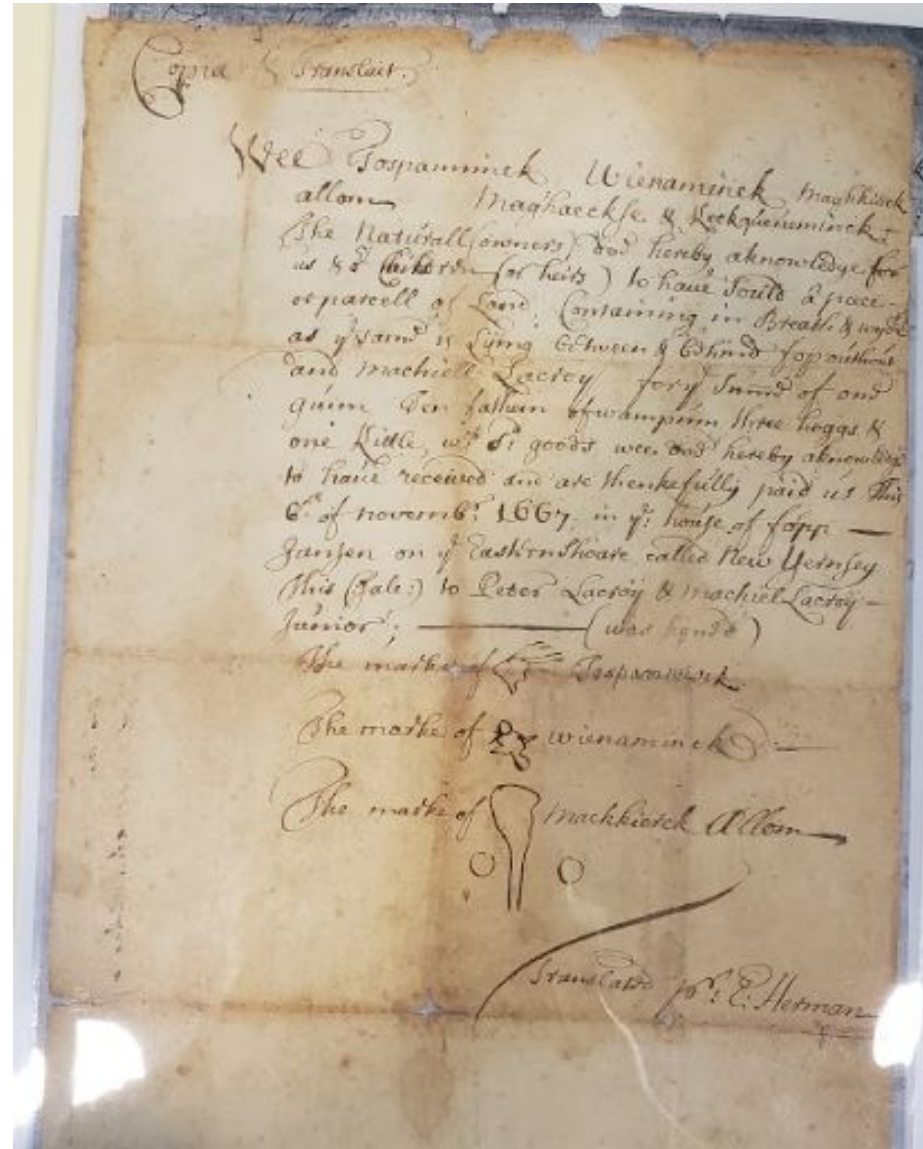 Copia & Translait.
Wee Tospaminck Wienaminck Maghkierck
allom Maghaeckse & Keekquenuminck
The Naturall (owners) doe hereby aknowledge for
us & oʳ Children (or heirs) to haue Sould a peace
or parcell of Land, Containing in Breath &
as yᵉ same is Lying between & behind fop outhout
and Machiell Lacroy for yᵉ Summe of one
guinn Ten fathem of wampum three hoggs &
one Kittle, wᶜʰ sᵈ goods wee doe hereby aknowledge
to haue received and are thenkefully paid us This
6ᵗʰ of novembʳ 1667 in yᵉ house of fopp —
Jansen on yᵉ Eastern Shoare called New Yernsey
This (Sale:) to Peter Lacroy & Machiel Lacroy —
Junior; ——— (was signd)
The marke of Tospaminck
The marke of wienaminck
The marke of Machkierck Allom
Translated pʳ E: Herman